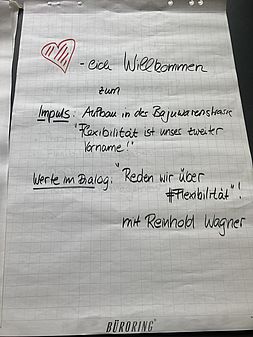 -lich Willkommen
zum
Impuls: Aufbau in der Bajuwarenstrasse
"Flexibilität ist unser zweiter
Vorname!"
Werte im Dialog: "Reden wir über
#Flexibilität"!
mit Reinhold Wagner
BÜRORING®